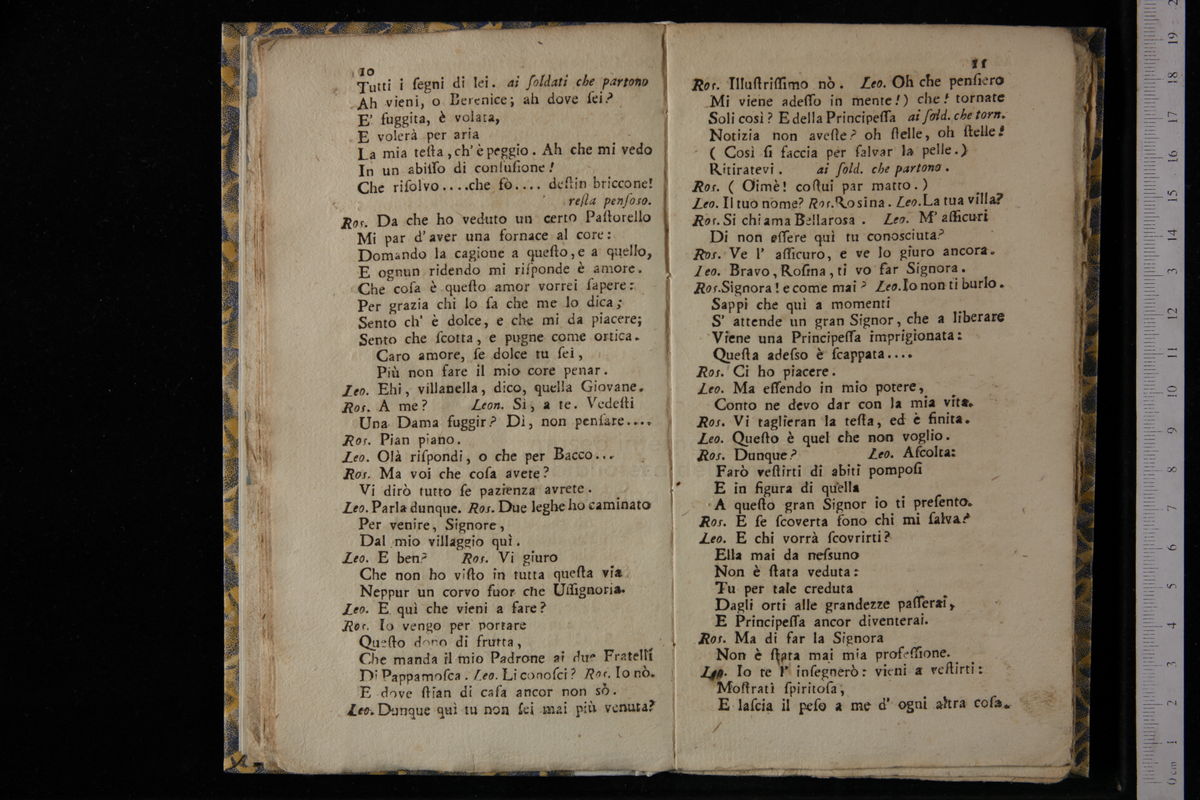 10
Tutti i ſegni di lei. ai ſoldati che partono
Ah vieni, o Berenice; ah dove ſei?
E' fuggita, è volata,
E volerà per aria
La mia teſta, ch' è peggio. Ah che mi vedo
In un abiſſo di confuſione!
Che riſolvo....che fò.... deſtin briccone!
reſta penſoso.
Ros. Da che ho veduto un certo Paſtorello
Mi par d' aver una fornace al core:
Domando la cagione a queſto, e a quello,
E ognun ridendo mi riſponde è amore.
Che coſa è queſto amor vorrei ſapere:
Per grazia chi lo ſa che me lo dica;
Sento ch' è dolce, e che mi da piacere;
Sento che ſcotta, e pugne come ortica.
Caro amore, ſe dolce tu ſei,
Più non fare il mio core penar.
Leo. Ehi, villanella, dico, quella Giovane.
Ros. A me? Leon. Sì, a te. Vedeſti
Una Dama fuggir? Di, non penſare....
Ros. Pian piano.
Leo. Olà riſpondi, o che per Bacco...
Ros. Ma voi che coſa avete?
Vi dirò tutto ſe pazienza avrete.
Leo. Parla dunque. Ros. Due leghe ho caminato
Per venire, Signore,
Dal mio villaggio quì.
Leo. E ben? Ros. Vi giuro
Che non ho viſto in tutta queſta via
Neppur un corvo fuor che Uſſignoria.
Leo. E quì che vieni a fare?
Ros. Io vengo per portare
Queſto dono di frutta,
Che manda il mio Padrone ai due Fratelli
Di Pappamoſca. Leo. Li conoſci? Ros. Io nò.
E dove ſtian di caſa ancor non sò.
Leo. Dunque quì tu non ſei mai più venuta?
11
Ros. Illuſtriſſimo nò. Leo. Oh che penſiero
Mi viene adeſſo in mente!) che! tornate
Soli così? E della Principeſſa ai ſold. che torn.
Notizia non aveſte? oh ſtelle, oh ſtelle!
( Così ſi faccia per ſalvar la pelle.)
Ritiratevi. ai ſold. che partono.
Ros. ( Oimè! coſtui par matto.)
Leo. Il tuo nome? Ros. Roſina. Leo. La tua villa?
Ros. Si chiama Bellarosa. Leo. M' aſſicuri
Di non eſſere quì tu conosciuta?
Ros. Ve l' aſſicuro, e ve lo giuro ancora.
Leo. Bravo, Roſina, ti vo far Signora.
Ros. Signora! e come mai? Leo. Io non ti burlo.
Sappi che quì a momenti
S' attende un gran Signor, che a liberare
Viene una Principeſſa imprigionata:
Queſta adeſso è ſcappata....
Ros. Ci ho piacere.
Leo. Ma eſſendo in mio potere,
Conto ne devo dar con la mia vita.
Ros. Vi taglieran la teſta, ed è finita.
Leo. Queſto è quel che non voglio.
Ros. Dunque? Leo. Aſcolta:
Farò veſtirti di abiti pompoſi
E in figura di quella
A queſto gran Signor io ti preſento.
Ros. E ſe ſcoverta ſono chi mi ſalva?
Leo. E chi vorrà ſcovrirti?
Ella mai da neſsuno
Non è ſtata veduta:
Tu per tale creduta
Dagli orti alle grandezze paſſerai,
E Principeſſa ancor diventerai.
Ros. Ma di far la Signora
Non è ſtata mai mia profeſſione.
Leo. Io te l' inſegnerò: vieni a veſtirti:
Moſtrati ſpiritoſa,
E laſcia il peſo a me d' ogni altra coſa.